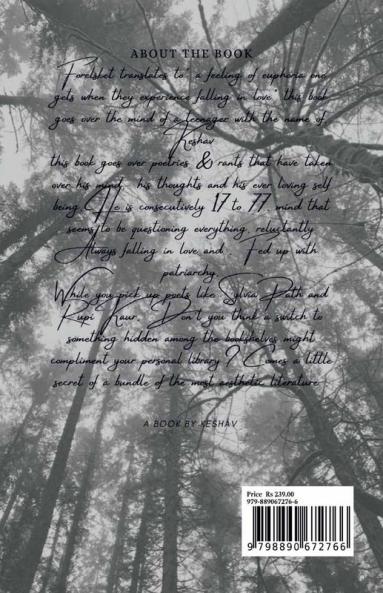 ABOUT THE BOOK
Forelsket translates to "a feeling of euphoria one
gets when they experience falling in love" this book
goes over the mind of a teenager with the name of
Keshav
this book goes over poetries & rants that have taken
over his mind, his thoughts and his ever loving self
being. He is consecutively 17 to 77, mind that
seems to be questioning everything, reluctantly
Always falling in love and Fed up with
patriarchy.
While you pick up poets like Sylvia Plath and
Rupi Kaur, Don't you think a switch to
something hidden among the bookshelves might
compliment your personal library? Comes a little
secret of a bundle of the most aesthetic literature
A BOOK BY KESHAV
Price Rs 239.00
979-889067276-6
9 798890 672766